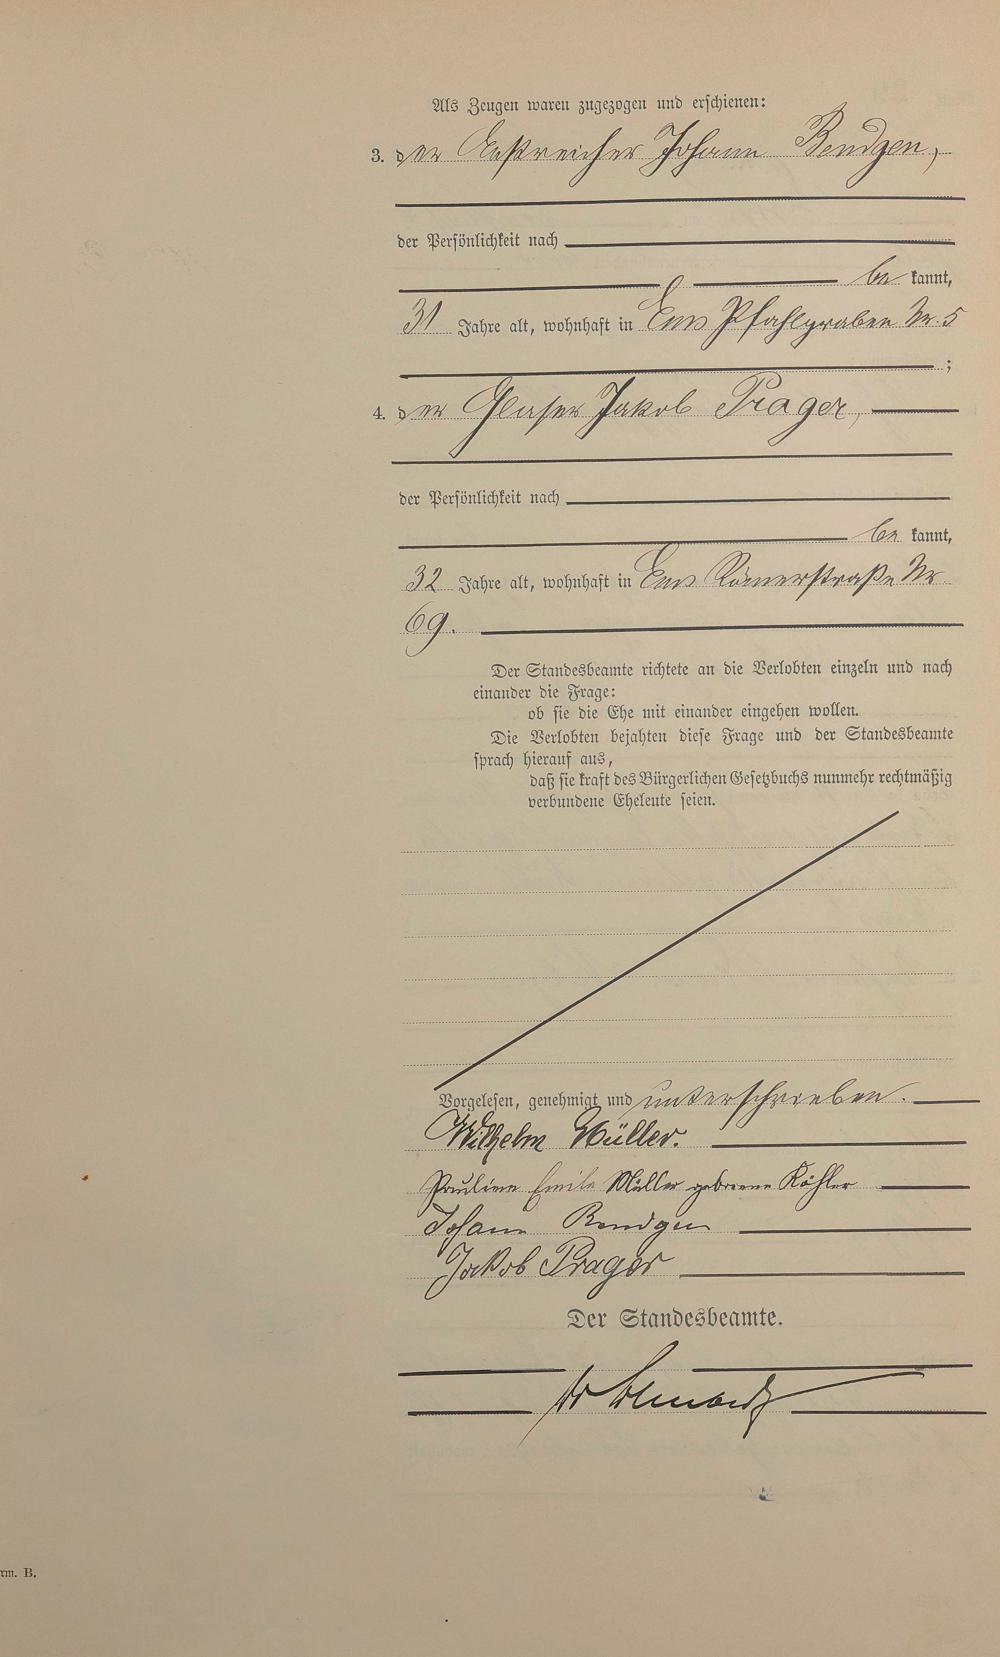 Als Zeugen waren zugezogen und erschienen:
3. der Anstreicher Johann Bendgen,
der Persönlichkeit nach
be kannt,
31 Jahre alt, wohnhaft in Ems Pfahlgraben Nr. 5
;
4. der Glaser Jakob Prager,
der Persönlichkeit nach
be kannt,
32 Jahre alt, wohnhaft in Ems Römerstraße Nr.
69.
Der Standesbeamte richtete an die Verlobten einzeln und nach
einander die Frage:
ob sie die Ehe mit einander eingehen wollen.
Die Verlobten bejahten diese Frage und der Standesbeamte
sprach hierauf aus,
daß sie kraft des Bürgerlichen Gesetzbuchs nunmehr rechtmäßig
verbundene Eheleute seien.
Vorgelesen, genehmigt und unterschrieben.
Wilhelm Müller.
Pauline Emilie Müller geborene Köhler
Johann Bendgen
Jakob Prager
Der Standesbeamte.
rm. B.